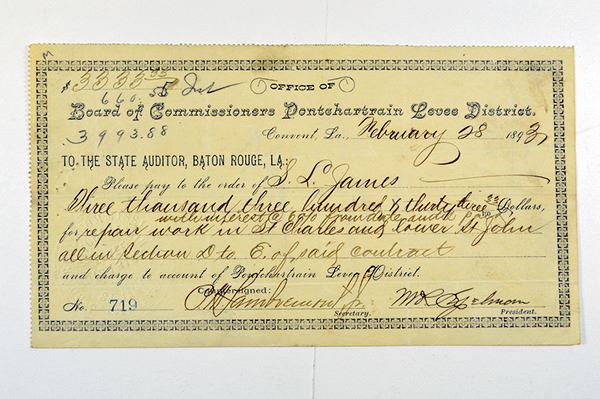 $3333 33
660.55 Int
3993.88
OFFICE OF
Board of Commissioners Pontchartrain Levee District.
Convent, La., February 28 1893
TO THE STATE AUDITOR, BATON ROUGE, LA.:
Please pay to the order of S. L. James
Three thousand three hundred & thirty three 33/100 Dollars,
with interest @ 6% from date until paid
for repair work in St Charles and lower St John
all in Section D to E. of said contract
and charge to account of Pontchartrain Levee District.
Countersigned:
Secretary.
President.
No. 719